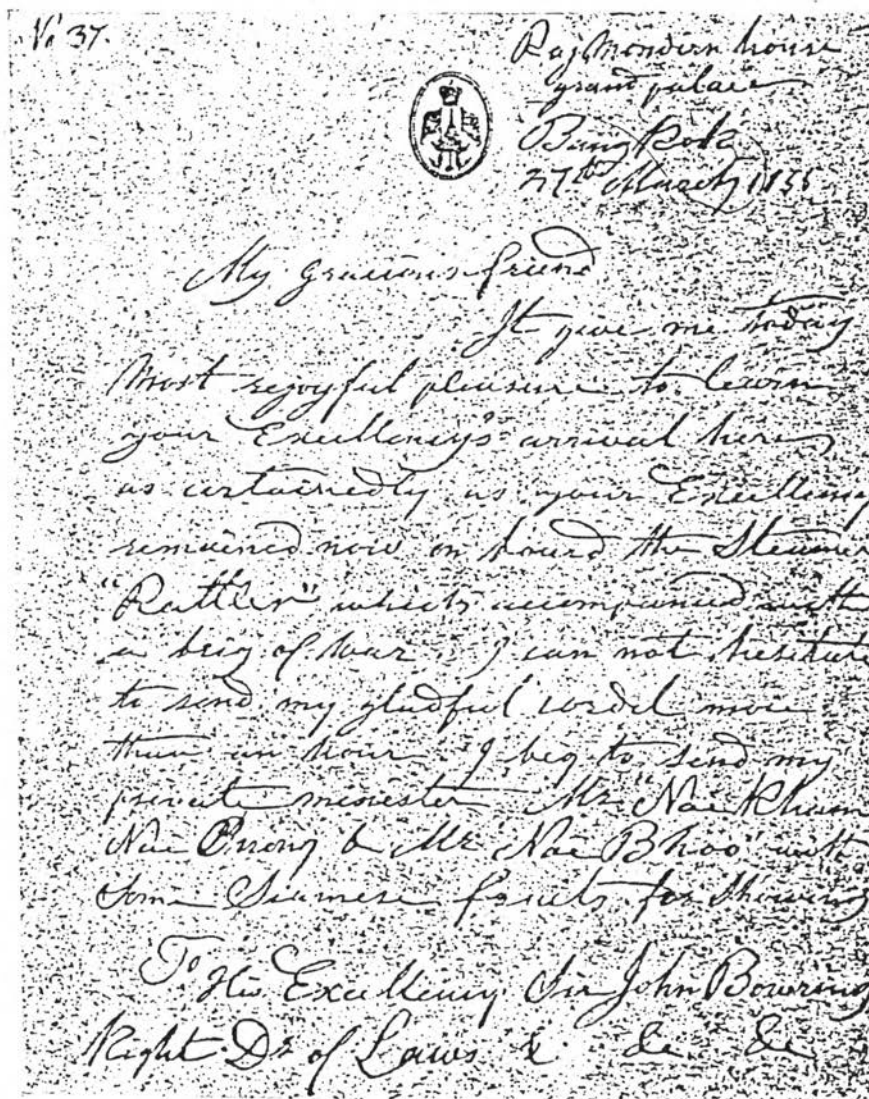 No 37.
Raj Mondirn house
grand palace
Bangkok
27th March 1855
My gracious friend
It give me today
most rejoyful pleasure to learn
your Excellency's arrival here
as certainedly as your Excellency
remained now on board the Steamer
"Rattler" which accompanied with
a brig of war. I can not hesitate
to send my gladful cordel more
than an hour. I beg to send my
private minister Mr. "Nai Kham
Nai Bhoo" with
some Siamese fruits for showing
To His Excellency Sir John Bowring
Right Dr of Laws &c &c